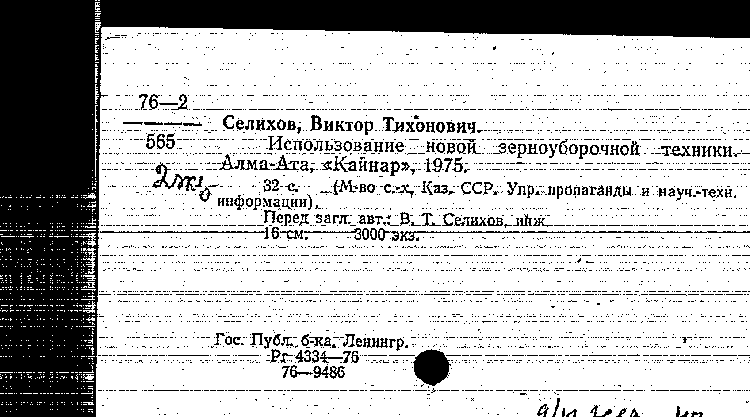 76—2
Селихов, Виктор Тихонович.
565
Использование новой зерноуборочной техники.
Алма-Ата, «Кайнар», 1975.
32 с. (М-во с.-х. Каз. ССР. Упр. пропаганды и науч.-техн.
информации).
Перед загл. авт.: В. Т. Селихов, инж.
16 см. 3000 экз.
Гос. Публ. б-ка. Ленингр.
Рг 4334—76
76—9486